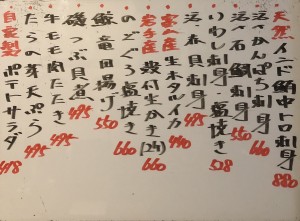 天然インド鮪中トロ刺身 880
活〆かんぱち刺身 660
活〆石鯛刺身 660
いわし刺身 塩焼き 528
活赤貝刺身 495
富山産生ホタルイカ 440
岩手産殻付生かき(2ケ) 660
のどぐろ塩焼き 660
鯨竜田揚げ 550
磯つぶ貝煮 495
牛モモ肉たたき 495
たらの芽天ぷら 495
自家製ポテトサラダ 418